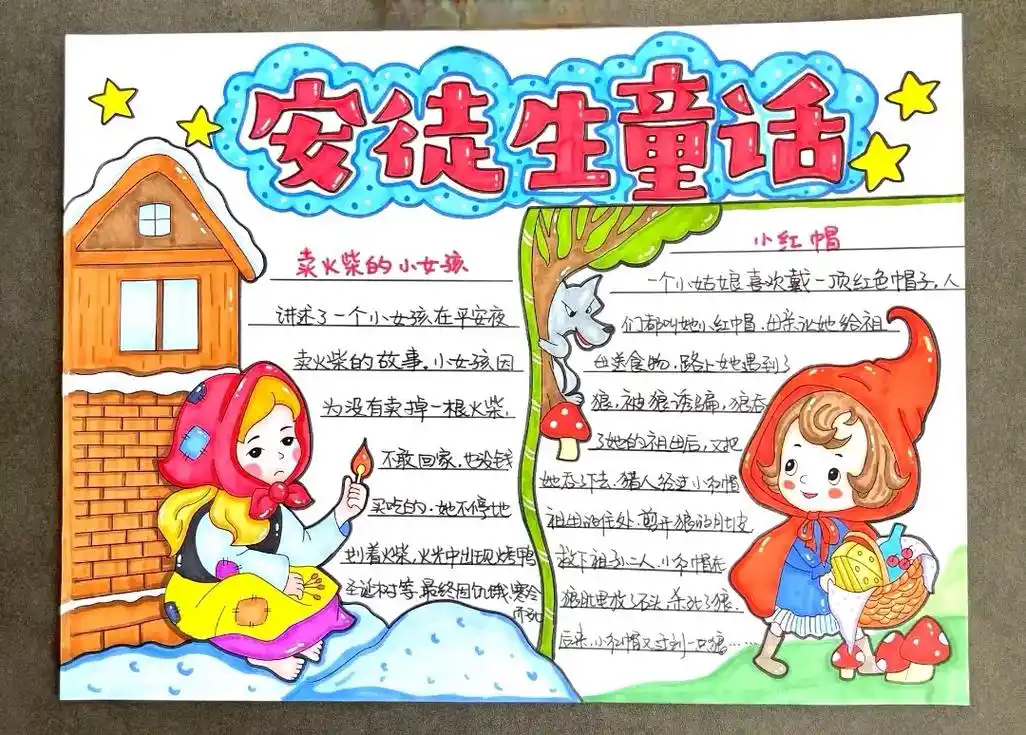 安徒生童话
卖火柴的小女孩
讲述了一个小女孩在平安夜
卖火柴的故事。小女孩因
为没有卖掉一根火柴,
不敢回家,也没钱
买吃的,她不停地
划着火柴,火光中出现烤鸭
圣诞树等,最终因饥饿寒冷
而死
小红帽
一个小姑娘喜欢戴一顶红色帽子,人
们都叫她小红帽,母亲让她给祖
母送食物,路上她遇到了
狼,被狼诱骗,狼吞
了她的祖母后,又把
她吞了下去,猎人经过小红帽
祖母的住处,剪开狼的肚皮
救下祖孙二人,小红帽在
狼肚里放了石头,杀死了狼,
后来,小红帽又寸到一只狼……